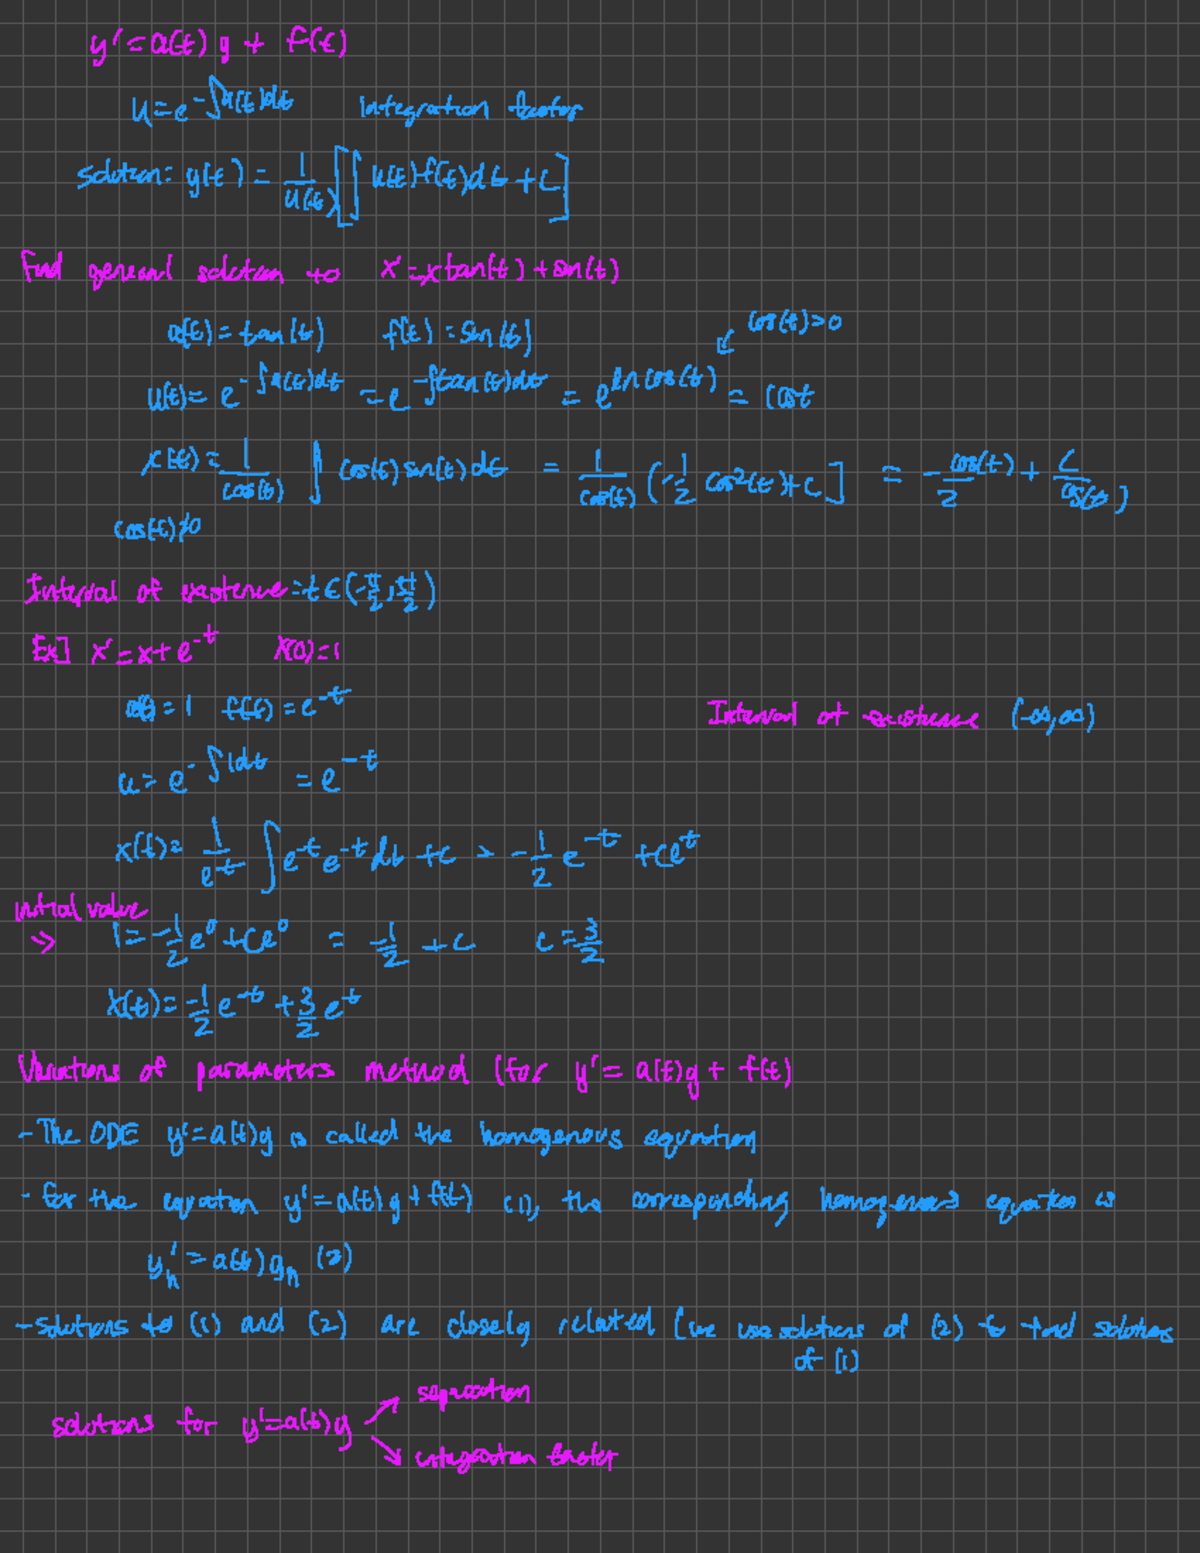 y' = a(t) y + f(t)
u = e^{-∫a(t)dt} Integration factor
solution: y(t) = 1/u(t) [∫ u(t) f(t) dt + C]
Find general solution to x' = x tan(t) + sin(t)
a(t) = tan(t) f(t) = sin(t) cos(t) > 0
u(t) = e^{-∫a(t)dt} = e^{-∫tan(t)dt} = e^{ln cos(t)} = cost
x(t) = 1/cos(t) ∫ cos(t) sin(t) dt = 1/cos(t) (-1/2 cos²(t) + C] = -cos(t)/2 + C/cos(t)
cos(t) ≠ 0
Interval of existence = t ∈ (-π/2, π/2)
Ex] x' = x + e^{-t} X(0) = 1
a(t) = 1 f(t) = e^{-t}
Interval of existence (-∞, ∞)
u = e^{-∫1dt} = e^{-t}
x(t) = 1/e^{-t} ∫ e^{-t} e^{-t} dt + C = -1/2 e^{-t} + Ce^{t}
initial value
=> 1 = -1/2 e^0 + Ce^0 = -1/2 + C C = 3/2
X(t) = -1/2 e^{-t} + 3/2 e^{t}
Variations of parameters method (for y' = a(t)y + f(t)
- The ODE y' = a(t)y is called the homogenous equation
- for the equation y' = a(t)y + f(t) (1), the corresponding homogenous equation is
y_h' = a(t) y_h (2)
- solutions to (1) and (2) are closely related (we use solutions of (2) to find solutions
of (1)
separation
solutions for y' = a(t)y
integration factor